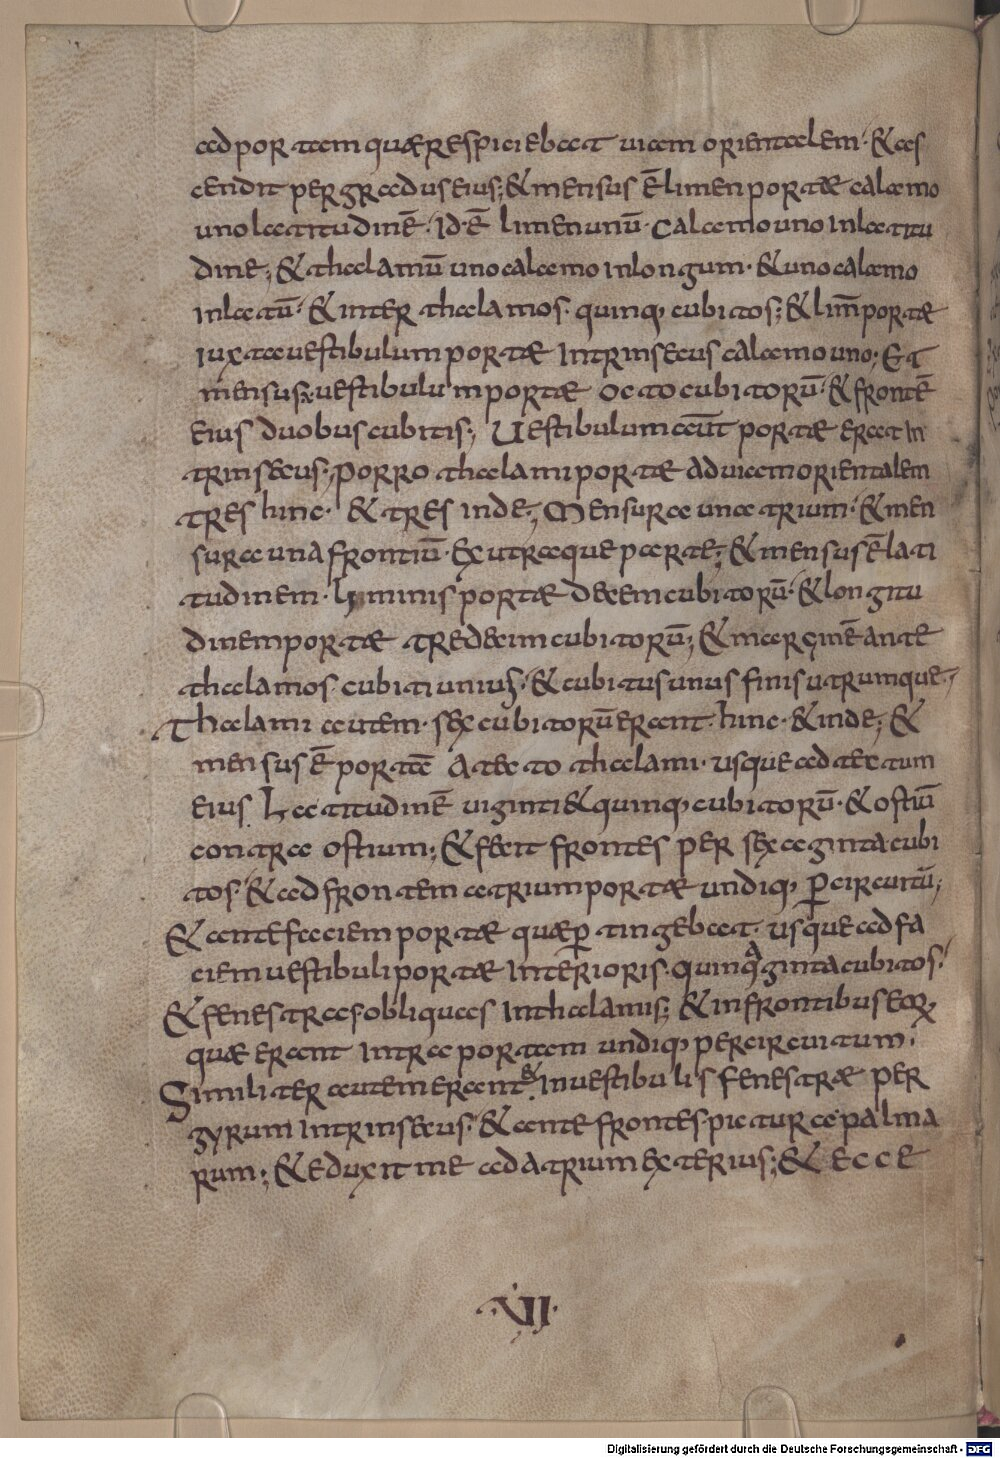 ad portam quæ respiciebat uiam orientalem · & as
cendit per gradus eius; & mensus ē limen portæ calamo
uno latitudinē · id ē limen unū · calamo uno in latitu
dine; & thalamū uno calamo in longum · & uno calamo
in latū · & inter thalamos · quinq; cubitos; & lim̄ portæ
iuxta uestibulum portæ intrinsecus calamo uno; Et
mensus uestibulum portæ octo cubitorū · & frontē
eius duobus cubitis; Uestibulum aūt portæ erat in
trinsecus; porro thalami portæ ad uiam orientalem
tres hinc · & tres inde; Mensura una trium · & men
sura una frontiū · ex utraque parte; & mensus ē lati
tudinem · liminis portæ decem cubitorū · & longitu
dinem portæ tredecim cubitorū; & marginē ante
thalamos · cubiti unius · & cubitus unus finis utrumque ·
Thalami autem · sex cubitorū erant · hinc · & inde; &
mensus ē portā a tecto thalami · usque ad tectum
eius Latitudinē uiginti & quinq; cubitorū · & ostiū
contra ostium; & fecit frontes per sexaginta cubi
tos · & ad frontem atrium portæ undiq; ꝑ circuitū;
& ante faciem portæ quæ ꝑtingebat · usque ad fa
ciem uestibuli portæ interioris · quinquaginta cubitos ·
& fenestras obliquas in thalamis; & in frontibus eoꝝ
quæ erant intra portam undiq; per circuitum ·
Similiter autem erant & in uestibulis fenestræ per
gyrum intrinsecus · & ante frontes pictura palma
rum; & eduxit me ad atrium exterius; & ecce
· VII ·
Digitalisierung gefördert durch die Deutsche Forschungsgemeinschaft - DFG